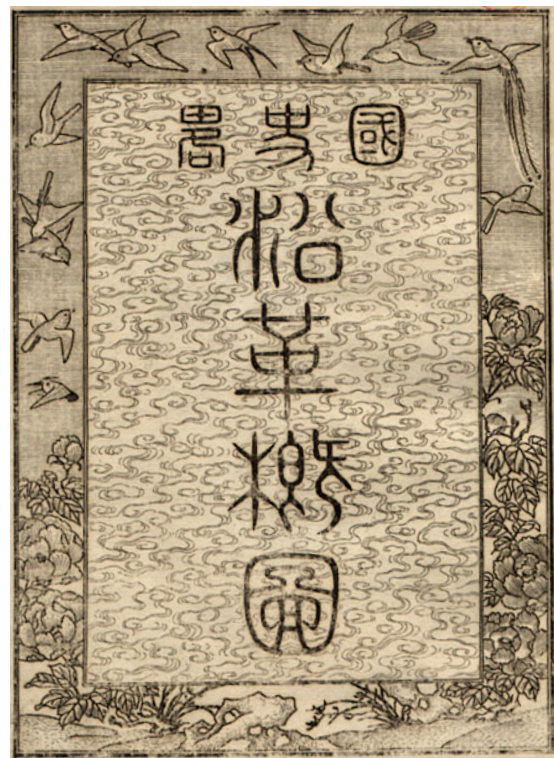 國史畧
沿革概圖